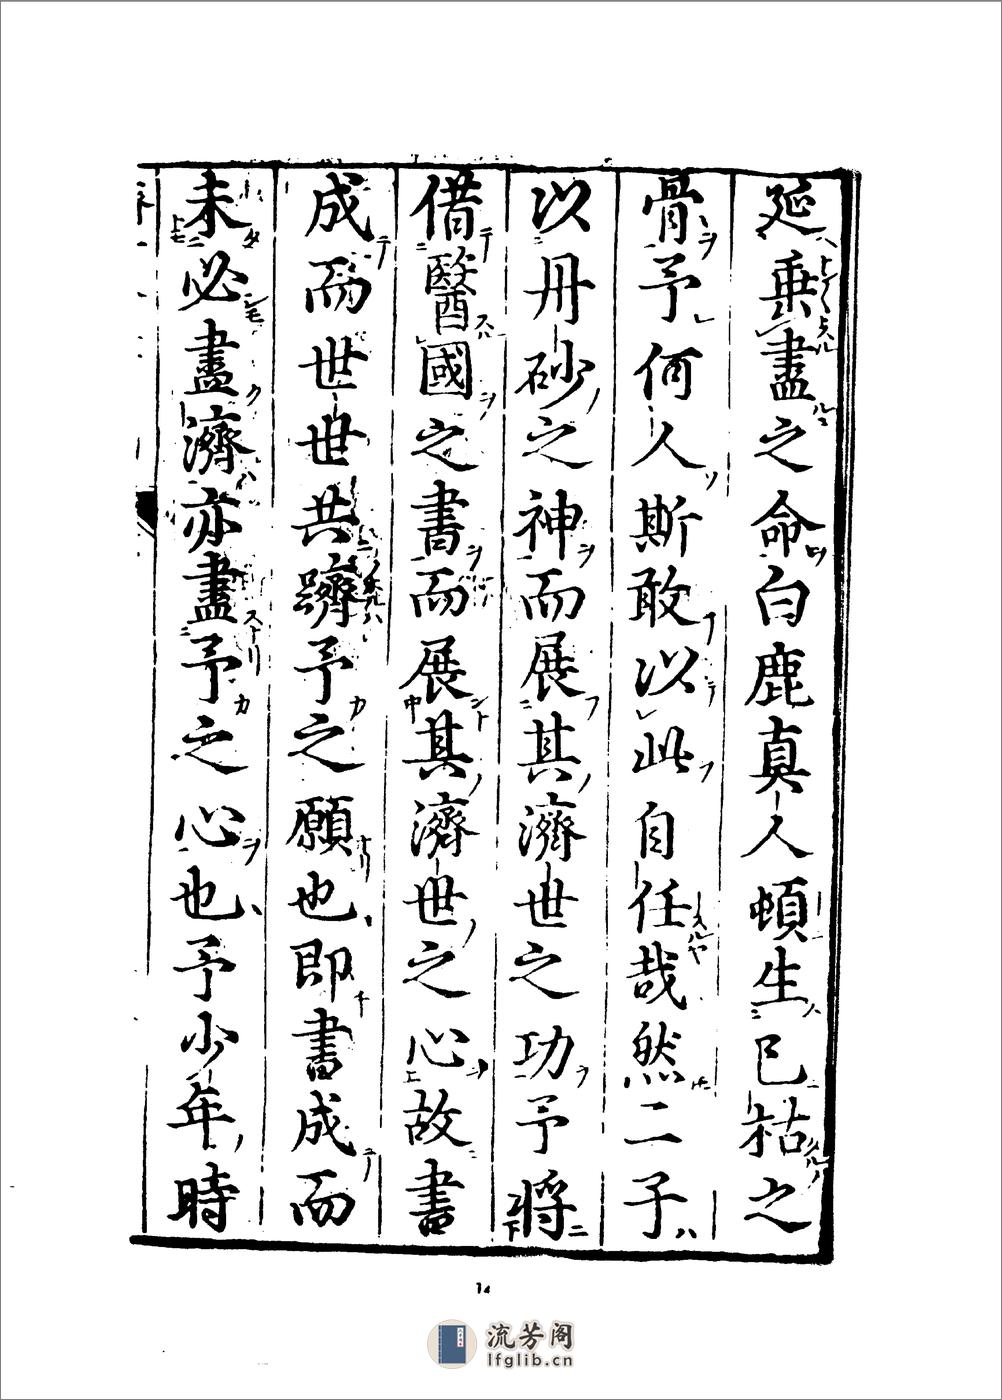 延垂盡之命白鹿真人頓生已枯之
骨予何人斯敢以此自任哉然二子
以丹砂之神而展其濟世之功予將
借醫國之書而展其濟世之心故書
成而世世共躋予之願也即書成而
未必盡濟亦盡予之心也予少年時
14
流芳阁
lfglib.cn